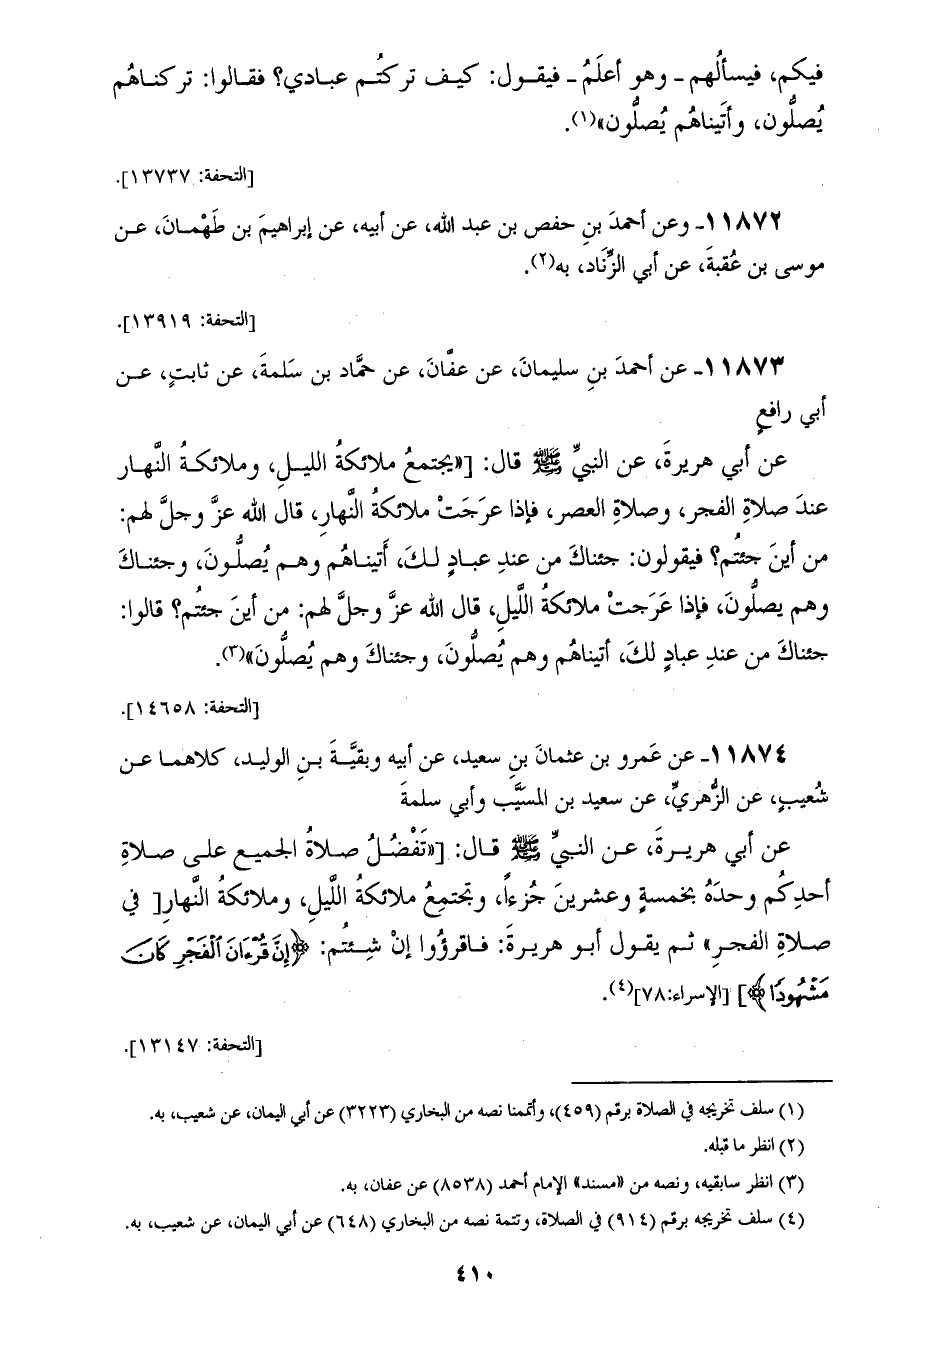 فيكم، فيسألُهم ـ وهو أعلَمُ ـ فيقـول: كيـف تركتُـم عبـادي؟ فقـالوا: تركنـاهُم
يُصلُّون، وأتَيناهُم يُصلُّون»(١).
[التحفة: ١٣٧٣٧].
١١٨٧٢ـ وعن أحمدَ بنِ حفص بن عبد الله، عن أبيه، عن إبراهيمَ بن طَهْمـانَ، عـن
موسى بن عُقبةَ، عن أبي الزِّنَاد، به(٢).
[التحفة: ١٣٩١٩].
١١٨٧٣ـ عن أحمدَ بنِ سليمانَ، عن عفَّانَ، عن حمَّاد بن سَلمةَ، عن ثابتٍ، عـن
أبي رافعٍ
عن أبي هريرةَ، عن النبيِّ ﷺ قال: [«يجتمعُ ملائكةُ الليـلِ، وملائكـةُ النَّهـار
عندَ صلاةِ الفجرِ، وصلاةِ العصر، فإذا عرَجَتْ ملائكةُ النَّهارِ، قال الله عزَّ وجلَّ لهم:
من أينَ جئتُم؟ فيقولون: جئناكَ من عندِ عبـادٍ لـكَ، أَتيناهُم وهـم يُصلُّـونَ، وجئنـاكَ
وهم يصلُّونَ، فإذا عَرَجتْ ملائكةُ اللَّيلِ، قال الله عزَّ وجلَّ لهم: من أينَ جئتُم؟ قالوا:
جئناكَ من عندِ عبادٍ لكَ، أتيناهُم وهم يُصلُّونَ، وجئناكَ وهم يُصلُّونَ»(٣).
[التحفة: ١٤٦٥٨].
١١٨٧٤ـ عن عَمرو بن عثمانَ بنِ سعيد، عن أبيه وبقيَّـةَ بـنِ الوليـد، كلاهمـا عـن
شُعيبٍ، عن الزُّهريِّ، عن سعيد بن المسَيَّب وأبي سلمةَ
عن أبي هريـرةَ، عـن النبيِّ ﷺ قـال: [«تَفْضُـلُ صـلاةُ الجميـع علـى صـلاةِ
أحدِكُم وحدَهُ بخمسةٍ وعشرينَ جُزءاً، وتجتمِعُ ملائكةُ اللَّيلِ، وملائكةُ النَّهارِ[ في
صلاةِ الفجـرِ» ثـم يقـول أبـو هريـرةَ: فـاقرؤوا إنْ شـئتُم: ﴿إِنَّ قُرْءَانَ ٱلْفَجْرِ كَانَ
مَشْهُودًا﴾] [الإسراء:٧٨](٤).
[التحفة: ١٣١٤٧].
(١) سلف تخريجه في الصلاة برقم (٤٥٩)، وأتممنا نصه من البخاري (٣٢٢٣) عن أبي اليمان، عن شعيب، به.
(٢) انظر ما قبله.
(٣) انظر سابقيه، ونصه من «مسند» الإمام أحمد (٨٥٣٨) عن عفان، به.
(٤) سلف تخريجه برقم (٩١٤) في الصلاة، وتتمة نصه من البخاري (٦٤٨) عن أبي اليمان، عن شعيب، به.
٤١٠